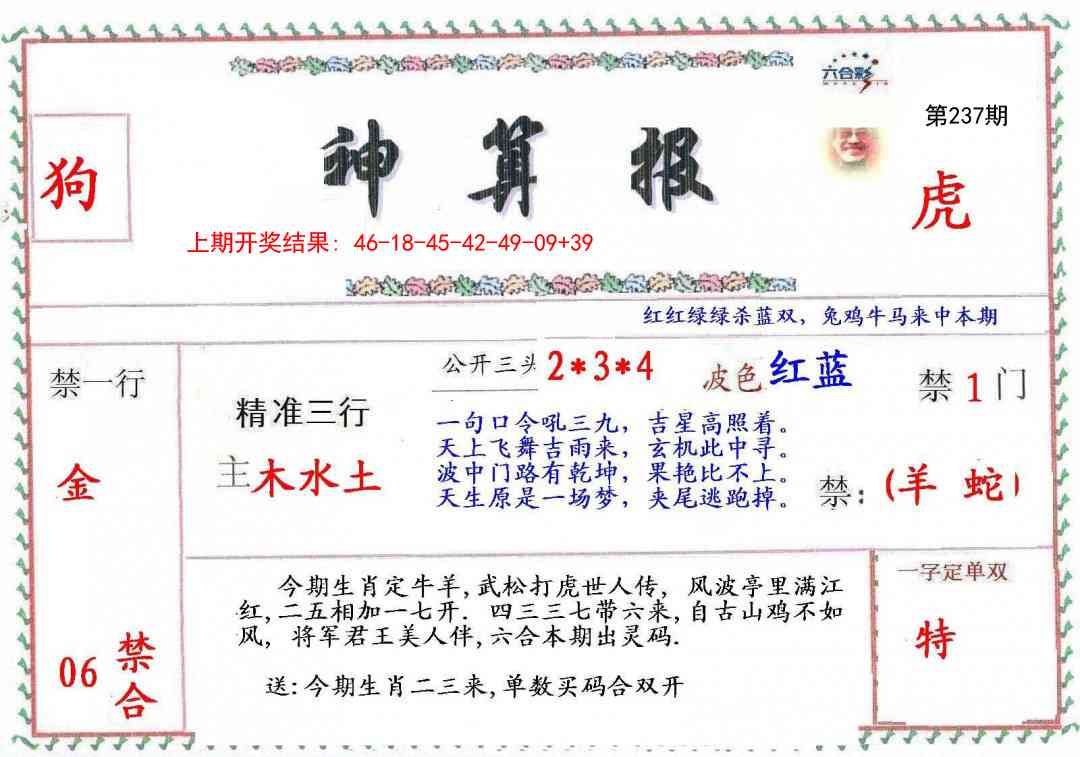 六合彩
第237期
神算报
狗
虎
上期开奖结果：46-18-45-42-49-09+39
红红绿绿杀蓝双，兔鸡牛马来中本期
禁一行
金
06
禁合
精准三行
主木水土
公开三头 2*3*4
波色 红蓝
一句口令吼三九，吉星高照着。
天上飞舞吉雨来，玄机此中寻。
波中门路有乾坤，果艳比不上。
天生原是一场梦，夹尾逃跑掉。
禁1门
禁：(羊 蛇)
今期生肖定牛羊,武松打虎世人传，风波亭里满江
红,二五相加一七开．四三三七带六来,自古山鸡不如
风，将军君王美人伴,六合本期出灵码.
送:今期生肖二三来,单数买码合双开
一字定单双
特